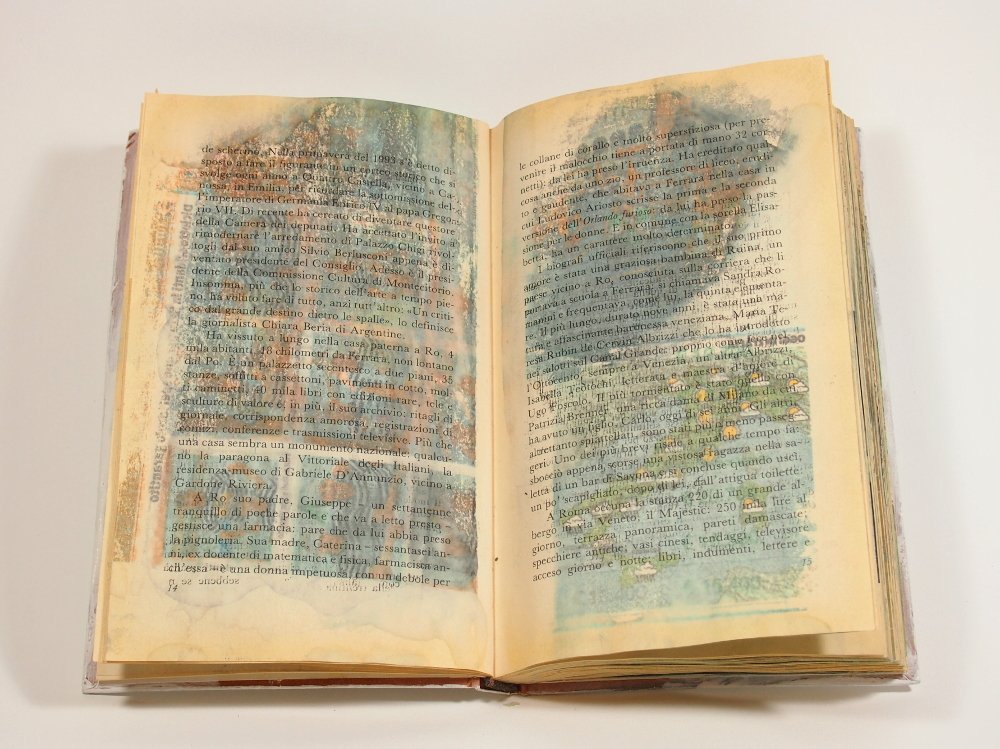 de scherno. Nella primavera del 1993 s'è detto di-
sposto a fare il figurante in un corteo storico che si
svolge ogni anno a Quattro Castella, vicino a Ca-
nossa, in Emilia, per ricordare la sottomissione del-
l'imperatore di Germania Enrico IV al papa Grego-
rio VII. Di recente ha cercato di diventare questore
della Camera dei deputati. Ha accettato l'invito a
rimodernare l'arredamento di Palazzo Chigi rivol-
togli dal suo amico Silvio Berlusconi appena è di-
ventato presidente del Consiglio. Adesso è il presi-
dente della Commissione Cultura di Montecitorio.
Insomma, più che lo storico dell'arte a tempo pie-
no, ha voluto fare di tutto, anzi tutt'altro: «Un criti-
co dal grande destino dietro le spalle», lo definisce
la giornalista Chiara Beria di Argentine.
Ha vissuto a lungo nella casa paterna a Ro, 4
mila abitanti, 18 chilometri da Ferrara, non lontano
dal Po. È un palazzetto secentesco a due piani, 35
stanze, soffitti a cassettoni, pavimenti in cotto, mol-
ti caminetti, 40 mila libri con edizioni rare, tele e
sculture di valore e, in più, il suo archivio: ritagli di
giornale, corrispondenza amorosa, registrazioni di
comizi, conferenze e trasmissioni televisive. Più che
una casa sembra un monumento nazionale: qualcu-
no la paragona al Vittoriale degli Italiani, la
residenza museo di Gabriele D'Annunzio, vicino a
Gardone Riviera.
A Ro suo padre, Giuseppe – un settantenne
tranquillo di poche parole e che va a letto presto –
gestisce una farmacia: pare che da lui abbia preso
la pignoleria. Sua madre, Caterina – sessantasei an-
ni, ex docente di matematica e fisica, farmacista an-
ch'essa – è una donna impetuosa, con un debole per
14
le collane di corallo e molto superstiziosa (per pre-
venire il malocchio tiene a portata di mano 32 cor-
netti): da lei ha preso l'irruenza. Ha ereditato qual-
cosa anche da uno zio, un professore di liceo, erudi-
to e gaudente, che abitava a Ferrara nella casa in
cui Ludovico Ariosto scrisse la prima e la seconda
versione dell'Orlando furioso: da lui ha preso la pas-
sione per le donne. E in comune con la sorella Elisa-
betta, ha un carattere molto determinato.
I biografi ufficiali riferiscono che il suo primo
amore è stata una graziosa bambina di Ruina, un
paese vicino a Ro, conosciuta sulla corriera che li
portava a scuola a Ferrara: si chiamava Sandra Ro-
manpi e frequentava, come lui, la quinta elementa-
re. Il più lungo, durato nove anni, è stata una ma-
tura e affascinante baronessa veneziana, Maria Te-
resa Rubin de Cervin Albrizzi che lo ha introdotto
nei salotti sul Canal Grande: proprio come fece, nel-
l'Ottocento, sempre a Venezia, un'altra Albrizzi,
Isabella Teotochi, letterata e maestra d'amore di
Ugo Foscolo. Il più tormentato è stato quello con
Patrizia Brenner, una ricca dama di Milano da cui
ha avuto un figlio, Carlo, oggi di sei anni. Gli altri,
altrettanto spiattellati, sono stati più o meno passeg-
geri. Uno dei più brevi risale a qualche tempo fa:
sbocciò appena scorse una vistosa ragazza nella sa-
letta di un bar di Savona e si concluse quando uscì,
un po' scapigliato, dopo di lei, dall'attigua toilette.
A Roma occupa la stanza 220 di un grande al-
bergo di via Veneto, il Majestic: 250 mila lire al
giorno, terrazza panoramica, pareti damascate,
specchiere antiche, vasi cinesi, tendaggi, televisore
acceso giorno e notte, libri, indumenti, lettere e
15